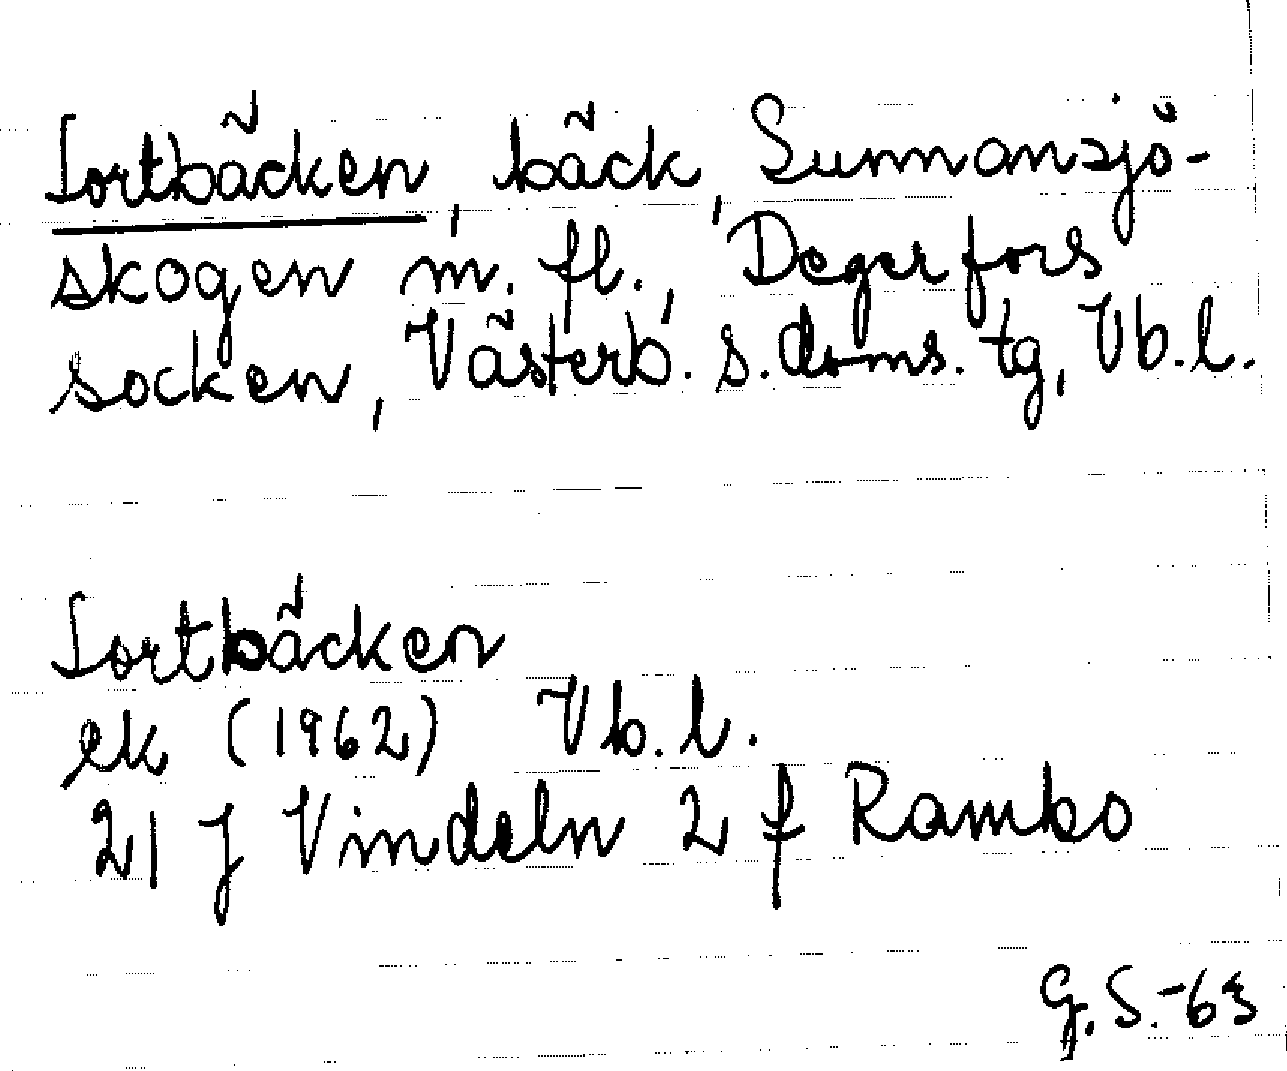 Sortbäcken, bäck, Sunnansjö-
skogen m. fl., Degerfors
socken, Västerb. s. doms. tg, Vb.l.
Sortbäcken
ek (1962) Vb.l.
21 J Vindeln 2 f Rambo
G.S.-63